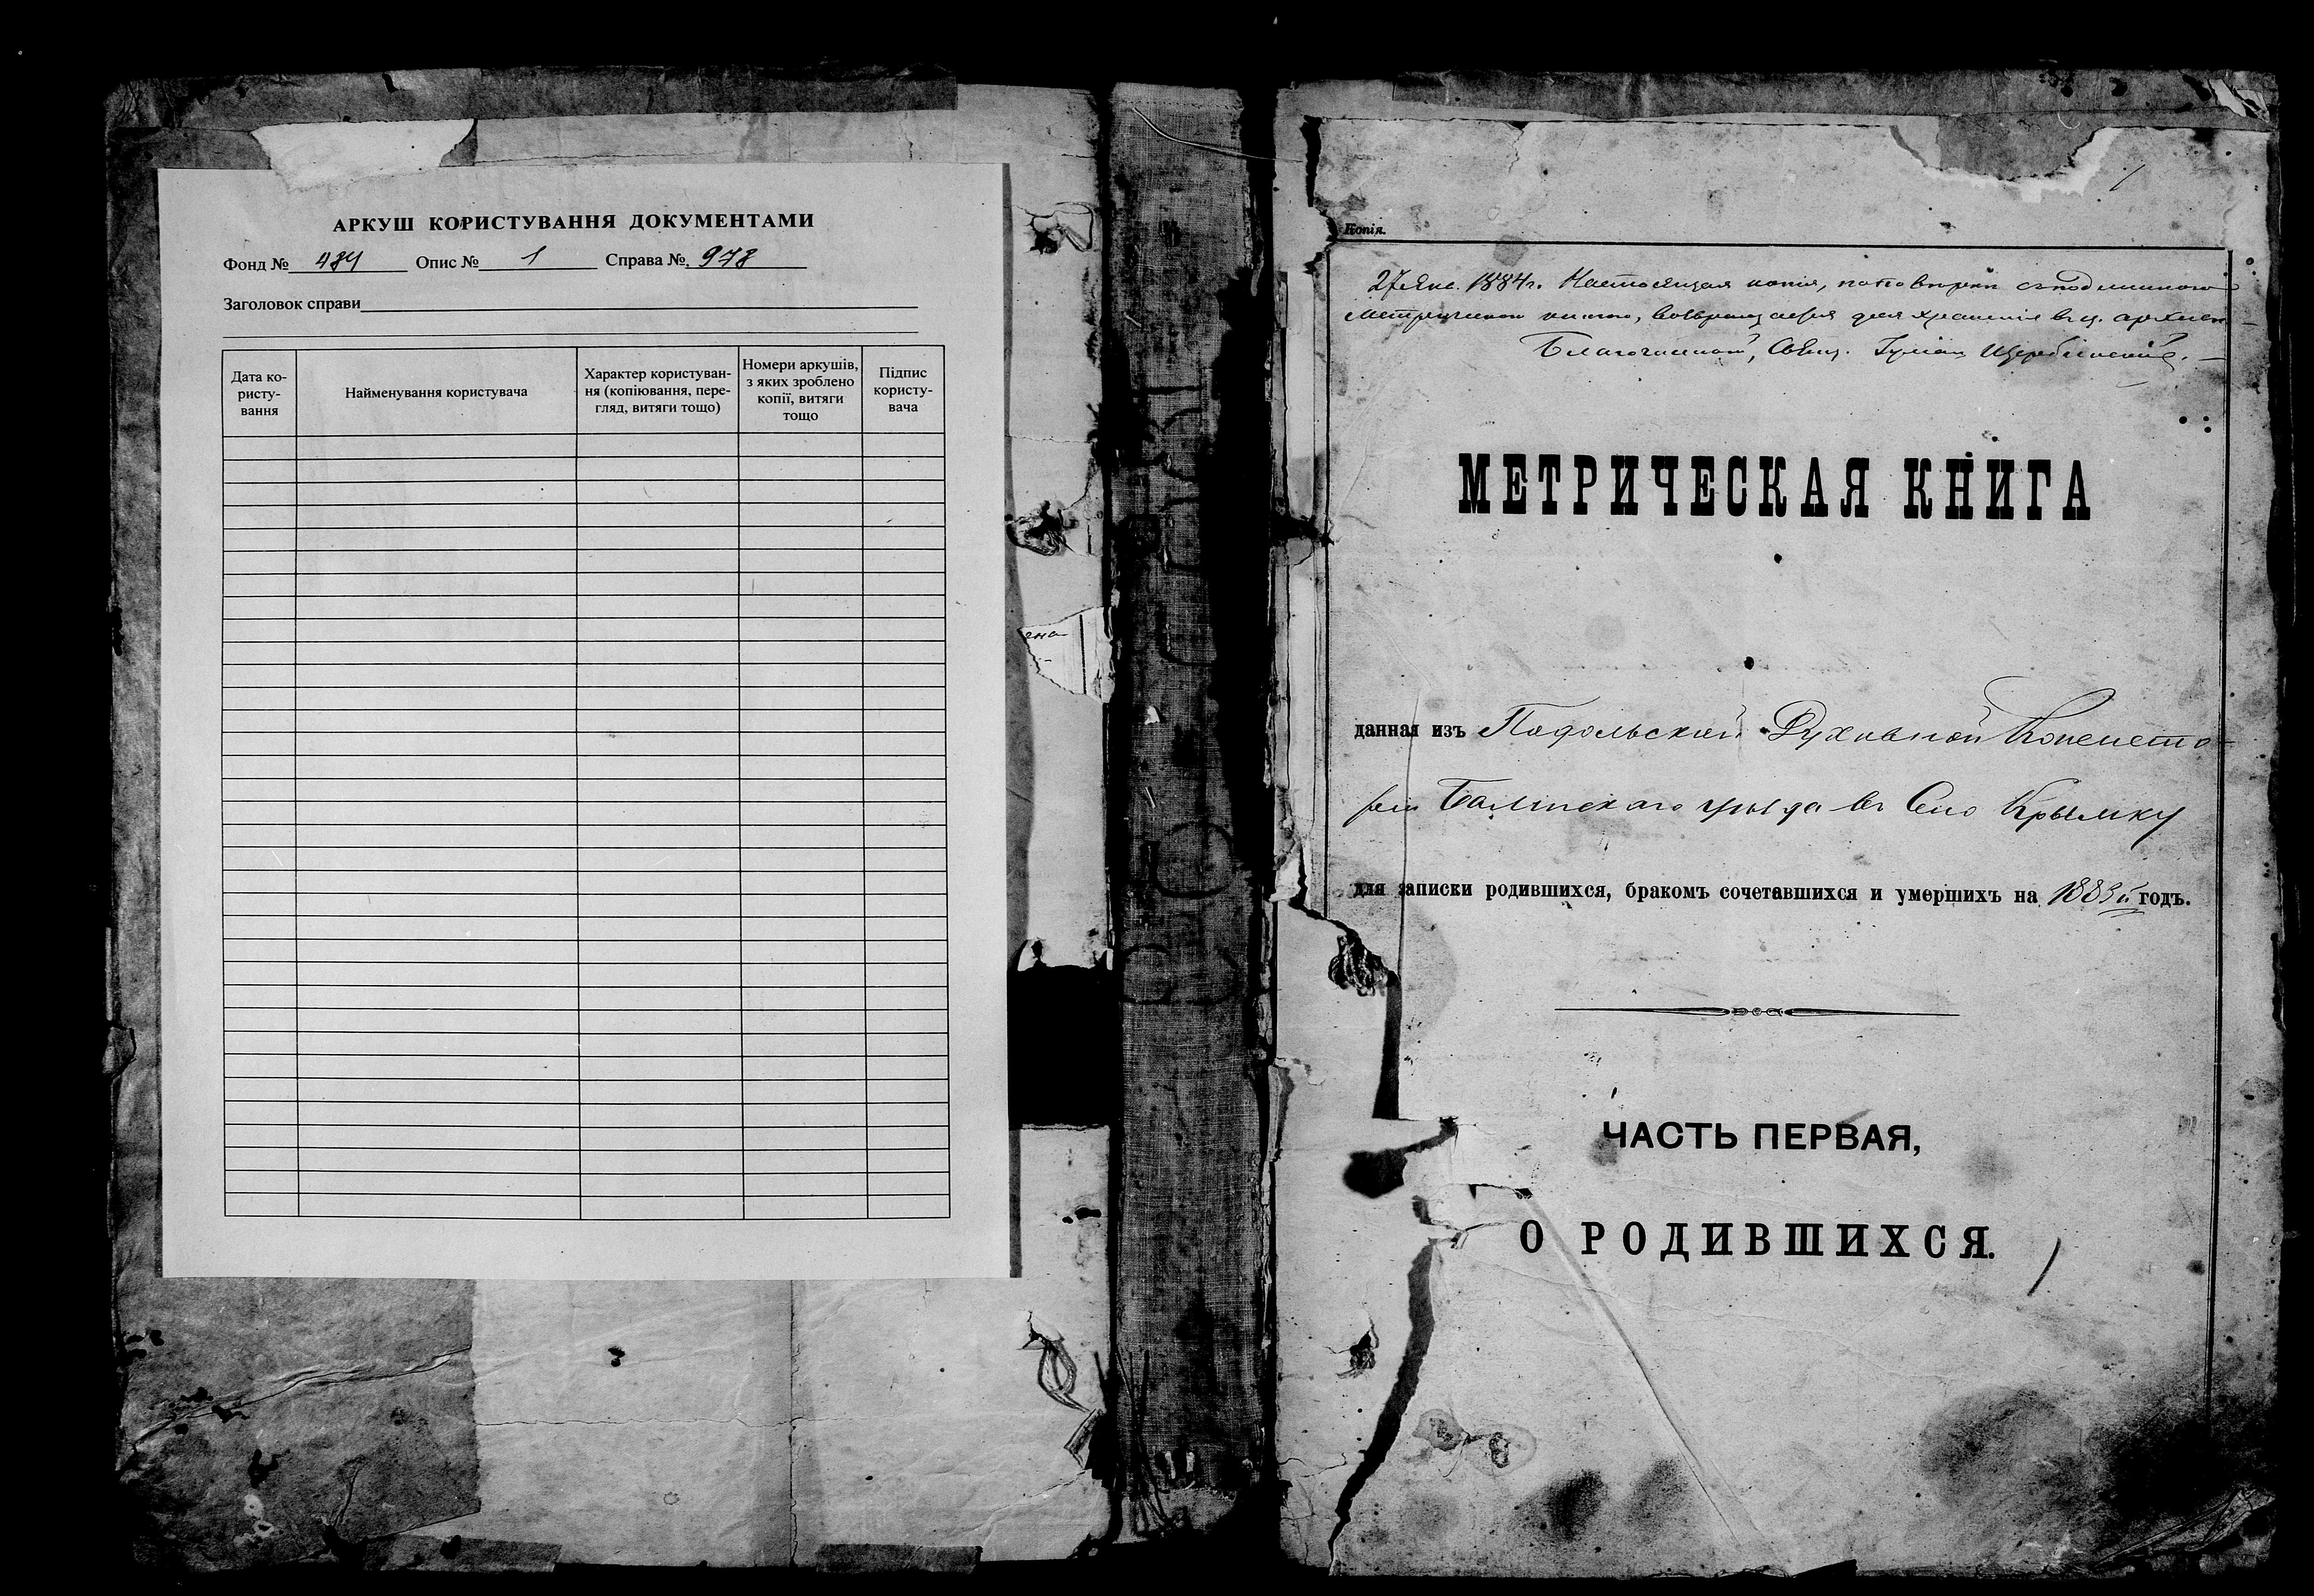 АРКУШ КОРИСТУВАННЯ ДОКУМЕНТАМИ
Фонд № 484 Опис № 1 Справа № 978
Заголовок справи
Дата ко-
ристу-
вання
Найменування користувача
Характер користуван-
ня (копіювання, пере-
гляд, витяги тощо)
Номери аркушів,
з яких зроблено
копії, витяги
тощо
Підпис
користу-
вача
ена
Копія.
27 Янв. 1884 г. Настоящая копія, по повѣркѣ съ подлинною
Метрическою книгою, возвращается для хранения в ц. архивѣ
Благочинный, Свящ.
МЕТРИЧЕСКАЯ КНИГА
данная изъ Подольской Духовной Консисто-
ріи Балтскаго уѣзда въ Село Крымку
для записки родившихся, бракомъ сочетавшихся и умершихъ на 1883й годъ.
ЧАСТЬ ПЕРВАЯ,
О РОДИВШИХСЯ.